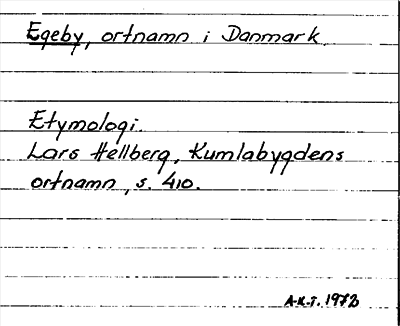 Egeby, ortnamn i Danmark.
Etymologi.
Lars Hellberg, Kumlabygdens
ortnamn, s. 410.
A.K.T. 1972